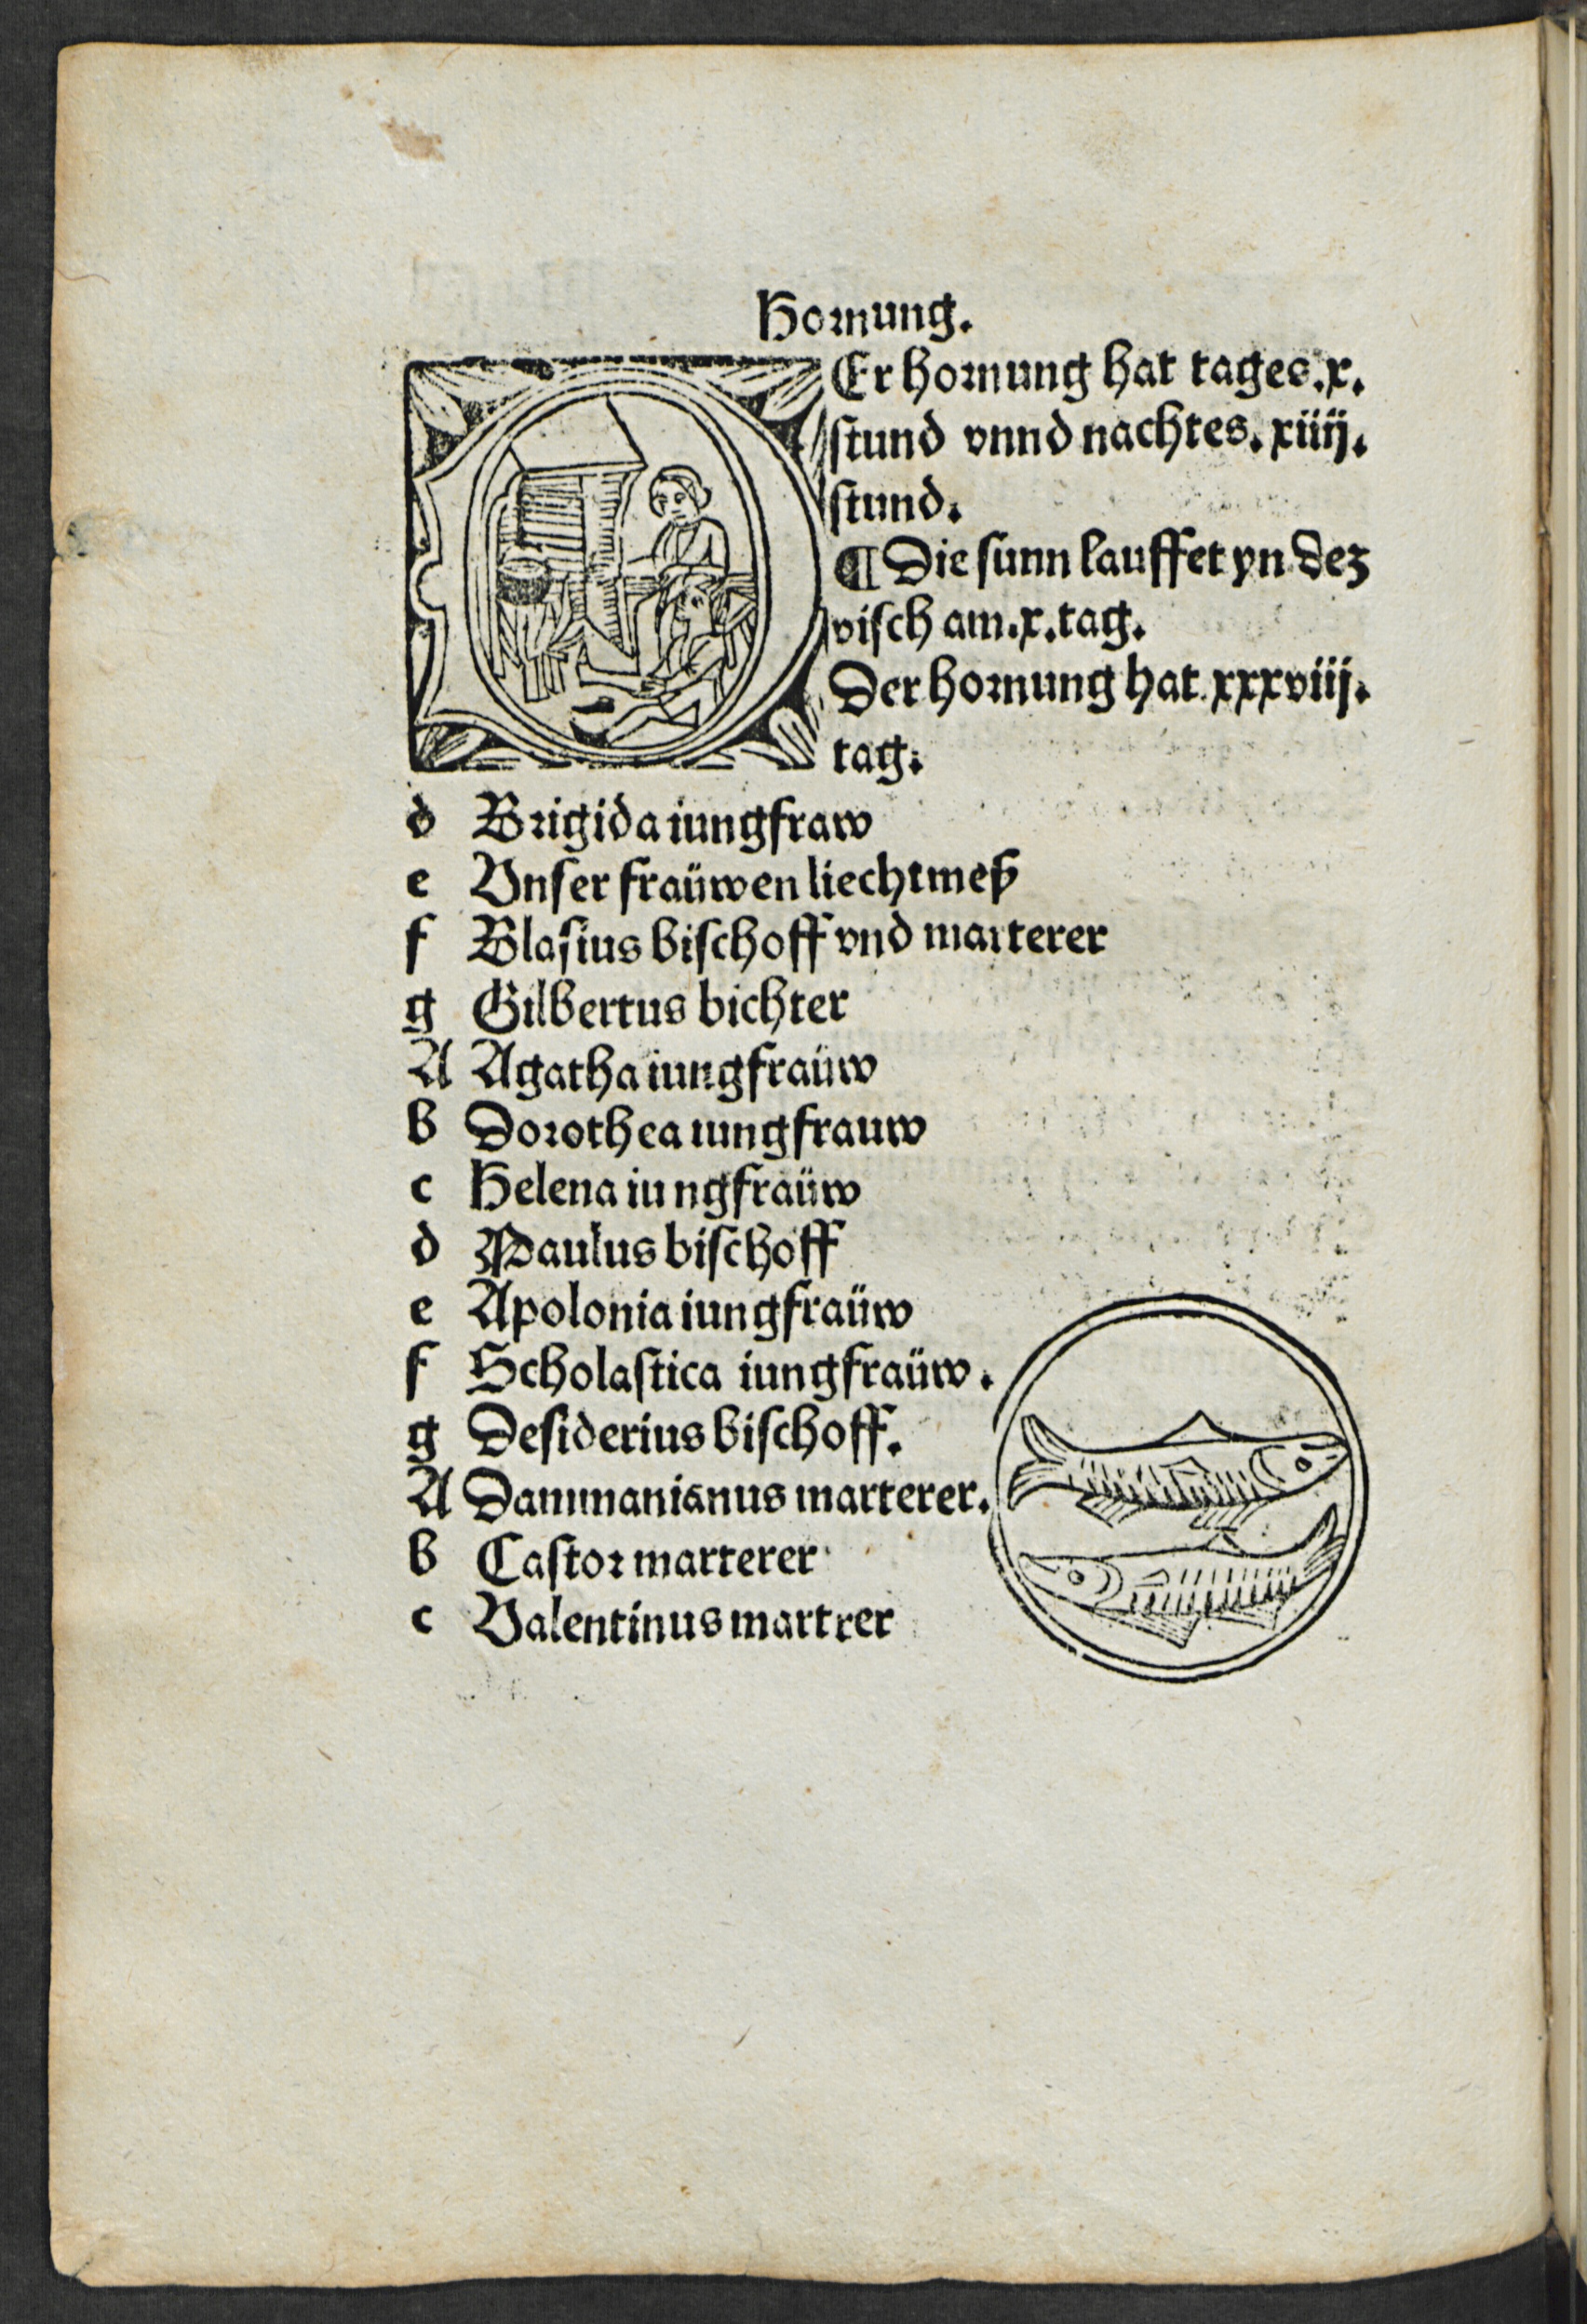 Hornung.
DEr hornung hat tages.x.
stund vnnd nachtes.xiiij.
stund.
¶ Die sunn lauffet yn dez
visch am.x.tag.
Der hornung hat.xxxviij.
tag.
d Brigida iungfraw
e Vnser fraüwen liechtmeß
f Blasius bischoff vnd marterer
g Gilbertus bichter
A Agatha iungfraüw
b Dorothea iungfrauw
c Helena iungfraüw
d Paulus bischoff
e Apolonia iungfraüw
f Scholastica iungfraüw.
g Desiderius bischoff.
A Dammanianus marterer.
b Castor marterer
c Valentinus martrer